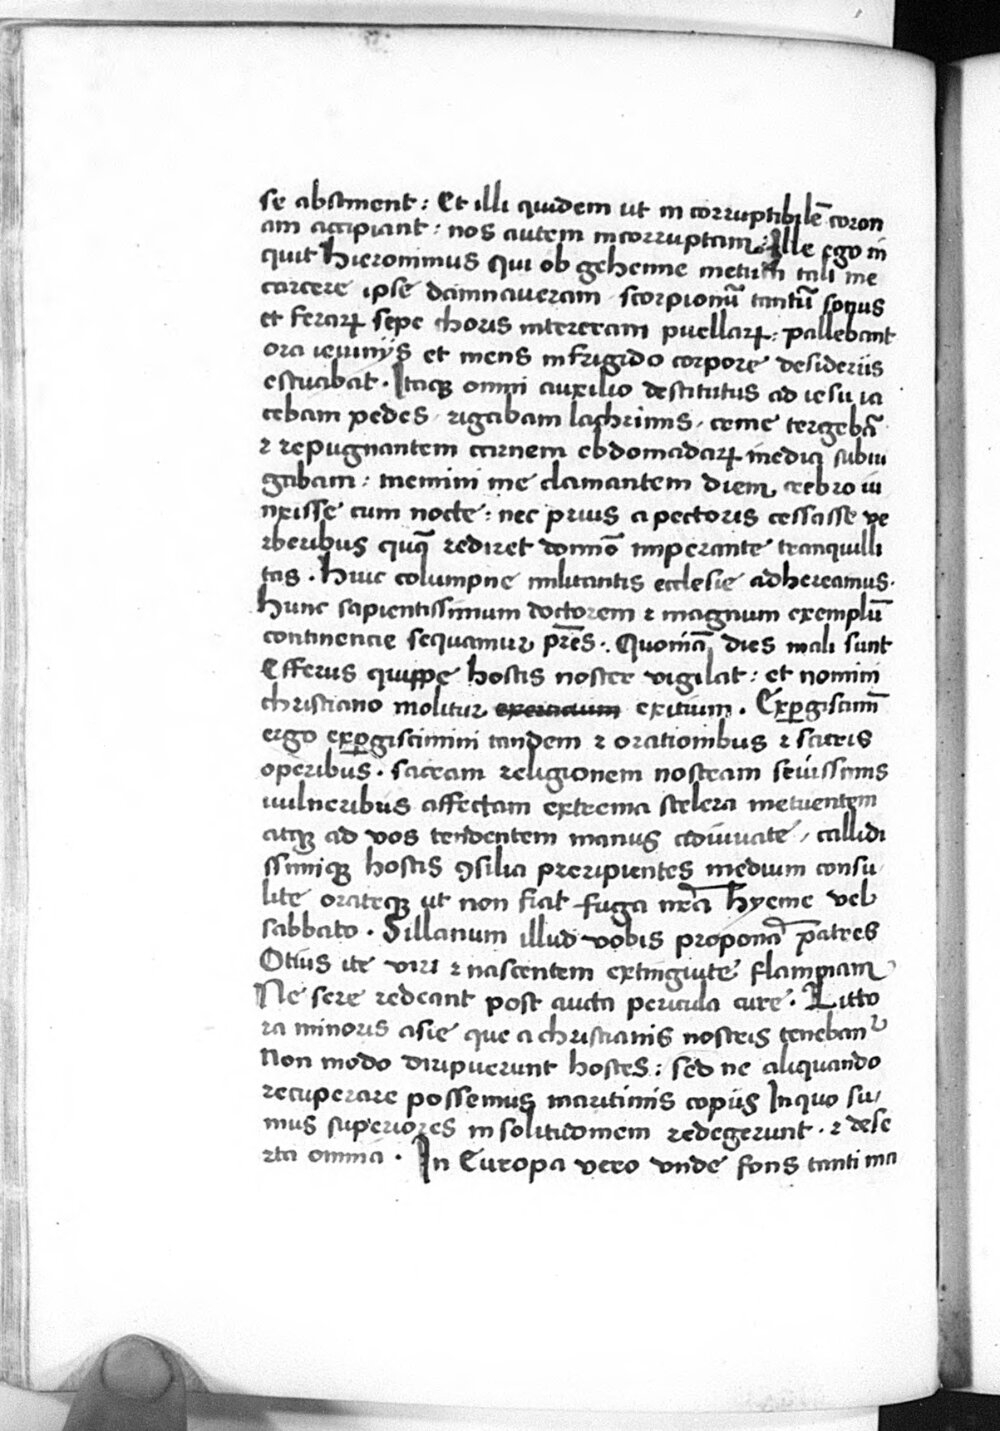 se abstinent : Et illi quidem ut in corruptibilē coron
am accipiant : nos autem incorruptam : Ille ego in
quit hieronimus qui ob gehenne metum tali me
carcere ipse damnaveram scorpionū tantū socius
et ferarꝝ sepe choris intereram puellarꝝ . pallebant
ora ieiuniis et mens in frigido corpore desideriis
estuabat . Itaqꝫ omni auxilio destitutus ad iesu ia
cebam pedes , rigabam lachrimis , crine tergebā
⁊ repugnantem carnem ebdomadarꝝ inedia subiu
gabam : memini me clamantem diem crebro iu
nxisse cum nocte : nec prius a pectoris cessasse ve
rberibus quā rediret domīo imperante tranquilli
tas . huic columpne militantis ecclesie adhereamus .
hunc sapientissimum doctorem ⁊ magnum exemplū
continencie sequamur pr̄es . Quoniā dies mali sunt
Efferus quippe hostis noster vigilat : et nomini
christiano molitur exitium . Exꝑgiscimī
ergo exꝑgiscimini tandem ⁊ orationibus ⁊ sacris
operibus . sacram religionem nostram sevissimis
vulneribus affectam extrema scelera metuentem
atqꝫ ad vos tendentem manus adiuvate , callidi
ssimiqꝫ hostis ꝯsilia preripientes medium consu
lite orateqꝫ ut non fiat fuga nr̄a hyeme vel
sabbato . Sillanum illud vobis proponā patres
Otius ite viri ⁊ nascentem extingiute flammam
Ne sere redeant post aucta pericula cure . Litto
ra minoris asie que a christianis nostris tenebant᷑
Non modo diripuerunt hostes : sed ne aliquando
recuperare possemus maritimis copiis In quo su
mus superiores in solitudinem redegerunt . ⁊ dese
rta omnia . In Europa vero unde fons tanti ma